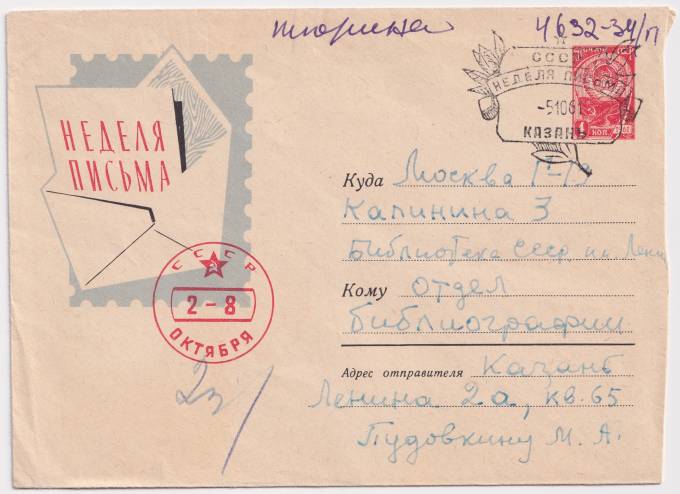 4632-34/п
СССР
НЕДЕЛЯ ПИСЬМА
-51061
КАЗАНЬ
1 КОП.
НЕДЕЛЯ
ПИСЬМА
СССР
2-8
ОКТЯБРЯ
Куда Москва Г-19
Калинина 3
Библиотека СССР им Лени
Кому Отдел
Библиографии
Адрес отправителя Казань
Ленина 2а, кв. 65
Пудовкину М. А.